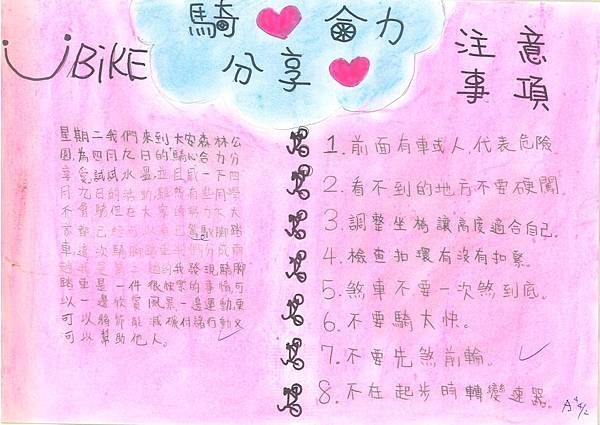 UBiKE
騎❤合力
分享❤
注意
事項
星期二我們來到大安森林公
園,為四月九日的「騎心合力分
享愛」試試水溫,並且感一下四
月九日的活動,雖然有些同學
不會騎但在大家的努力下大
家都已經可以自己駕馭腳踏
車,這次騎腳踏車我們分成兩
組我是第二組的我發現騎腳
踏車是一件很快樂的事情可
以一邊欣賞風景一邊運動,更
可以將節能減碳付諸行動又
可以幫助他人。
1.前面有車或人,代表危險。
2.看不到的地方不要硬闖。
3.調整坐椅讓高度適合自己。
4.檢查扣環有沒有扣緊。
5.煞車不要一次煞到底。
6.不要騎太快。
7.不要先煞前輪。
8.不在起步時轉變速器。
A+ 4/2